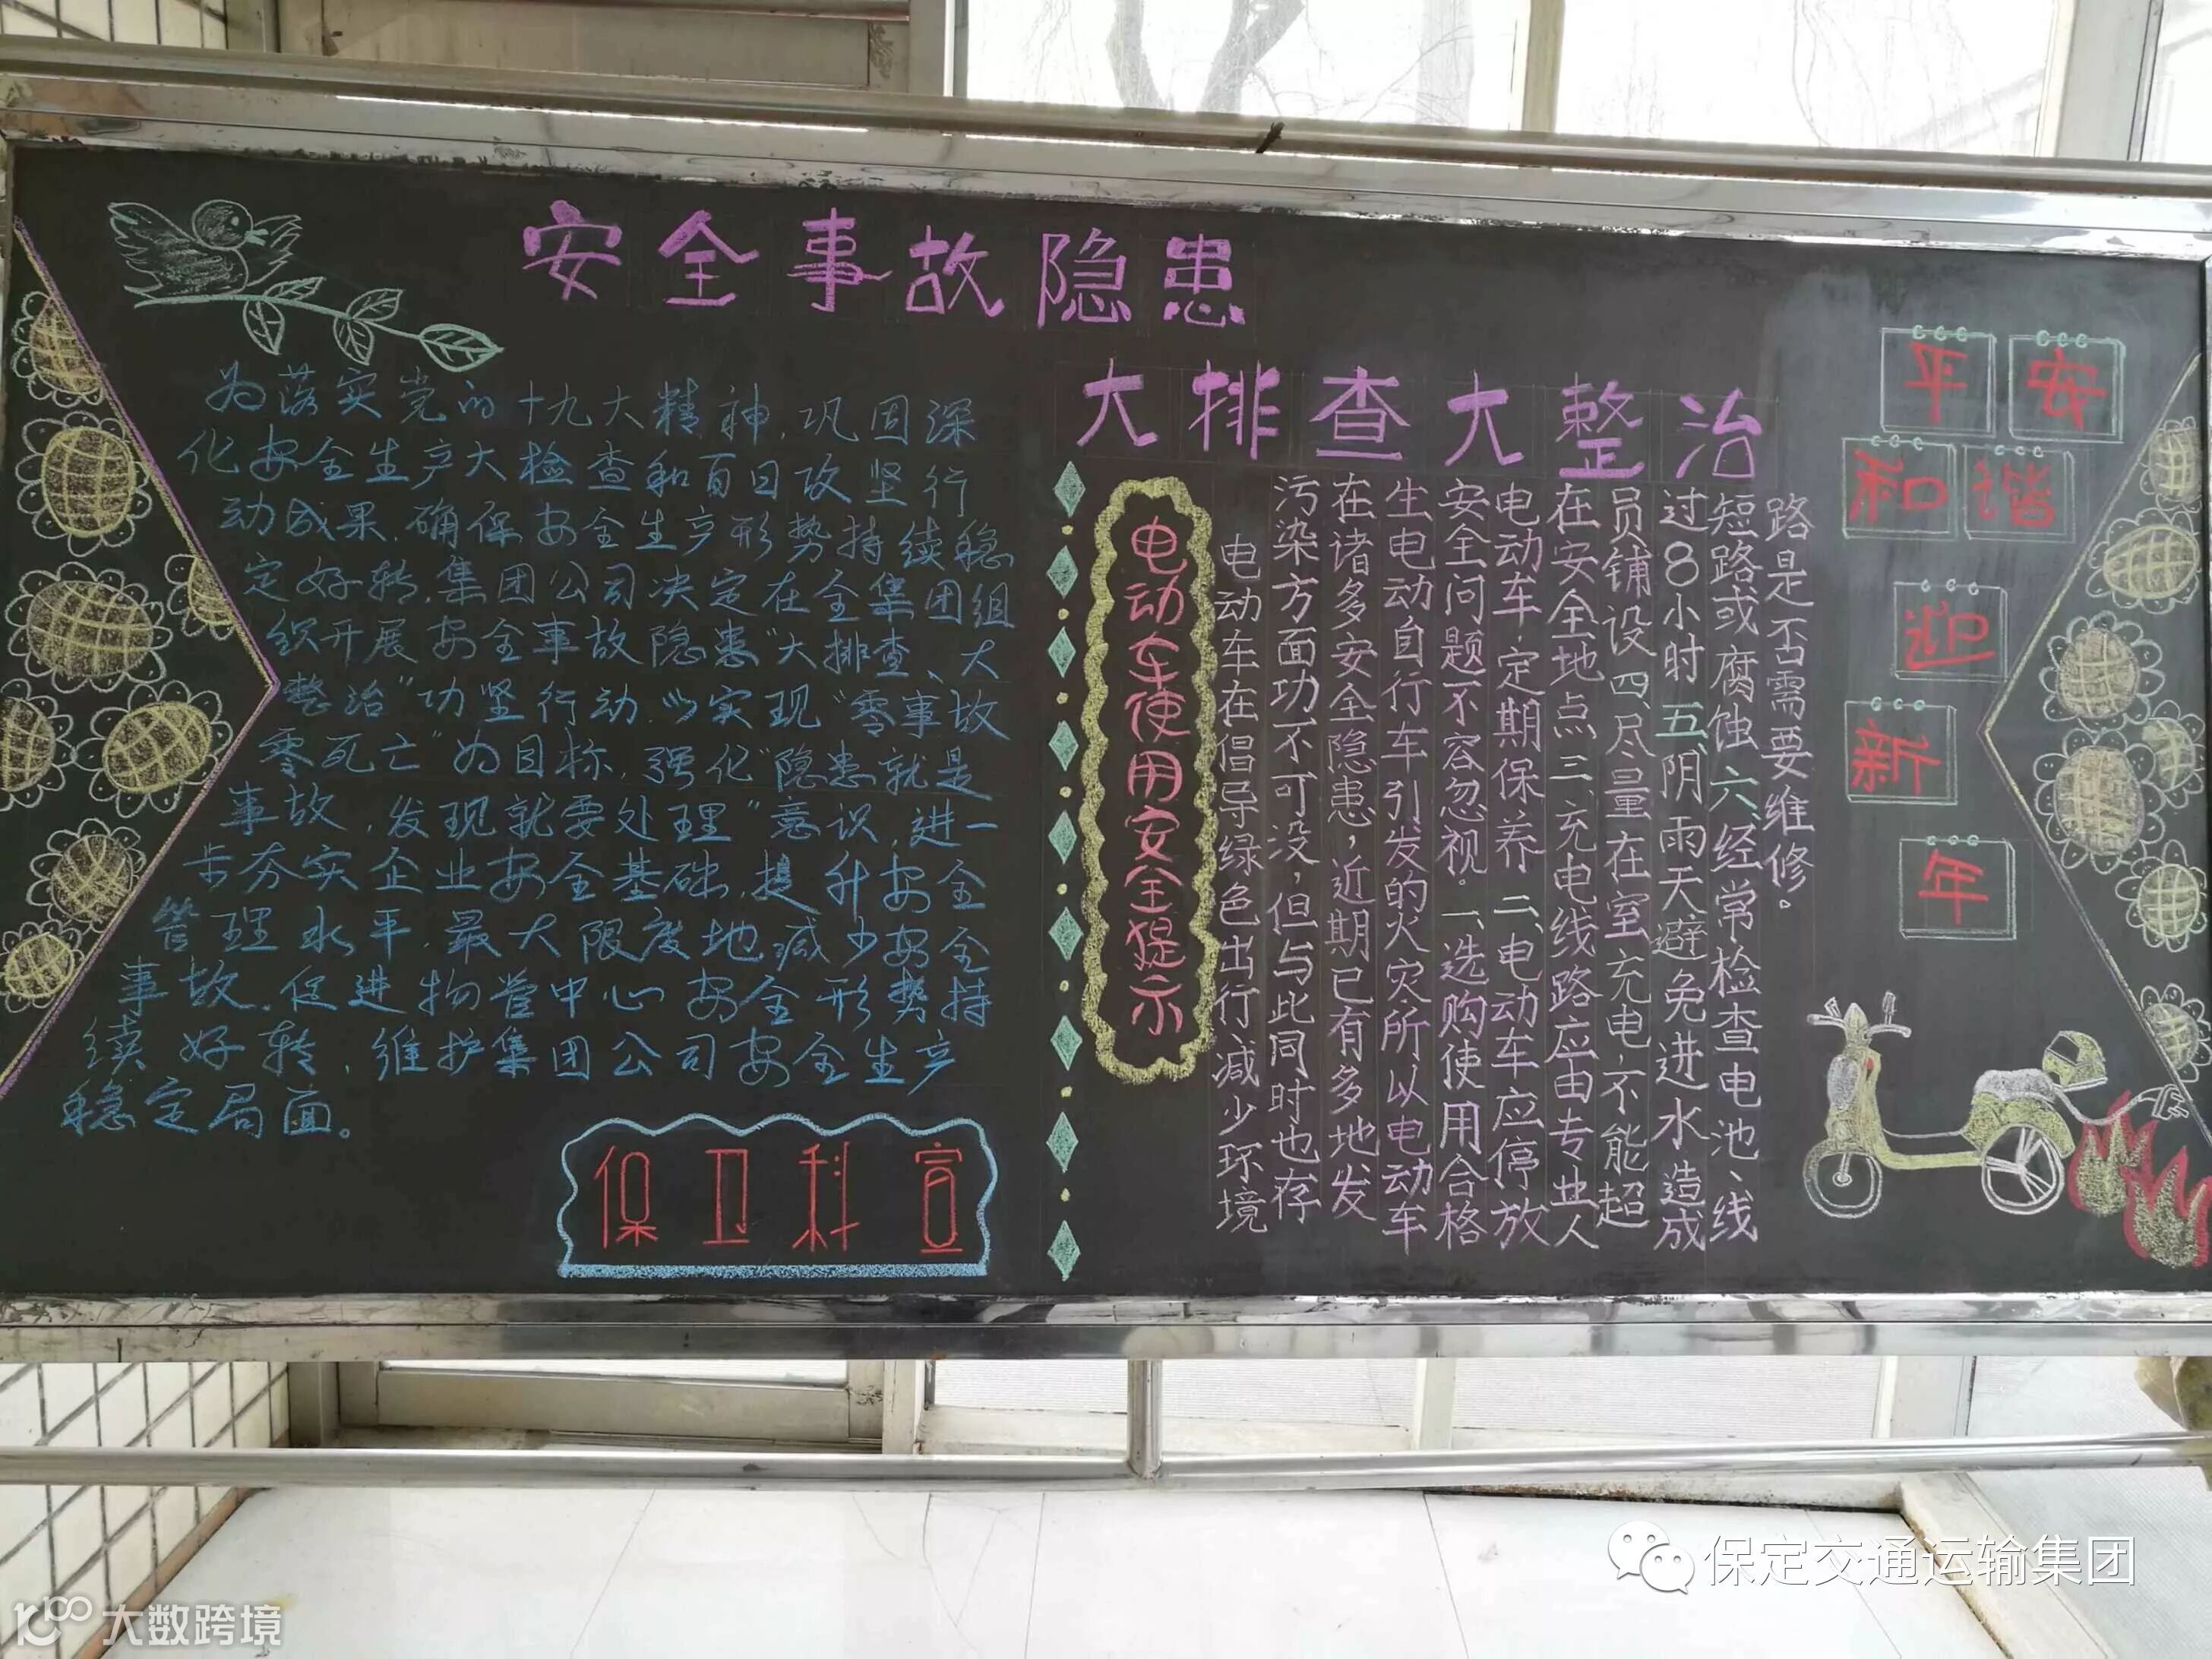 安全事故隐患
大排查大整治
为落实党的十九大精神,巩固深
化安全生产大检查和百日攻坚行
动成果,确保安全生产形势持续稳
定好转,集团公司决定在全集团组
织开展安全事故隐患"大排查、大
整治"功坚行动,以实现"零事故
零死亡"为目标,强化"隐患就是
事故,发现就要处理"意识,进一
步夯实企业安全基础,提升安全
管理水平,最大限度地减少安全
事故,促进物管中心安全形势持
续好转,维护集团公司安全生产
稳定局面。
保卫科宣
电动车使用安全提示
电动车在倡导绿色出行减少环境
污染方面功不可没,但与此同时也存
在诸多安全隐患,近期已有多地发
生电动自行车引发的火灾所以电动车
安全问题不容忽视。一、选购使用合格
电动车,定期保养 二、电动车应停放
在安全地点 三、充电线路应由专业人
员铺设 四、尽量在室充电,不能超
过8小时 五、阴雨天避免进水造成
短路或腐蚀 六、经常检查电池、线
路是否需要维修。
平安
和谐
迎
新
年
保定交通运输集团
大数跨境